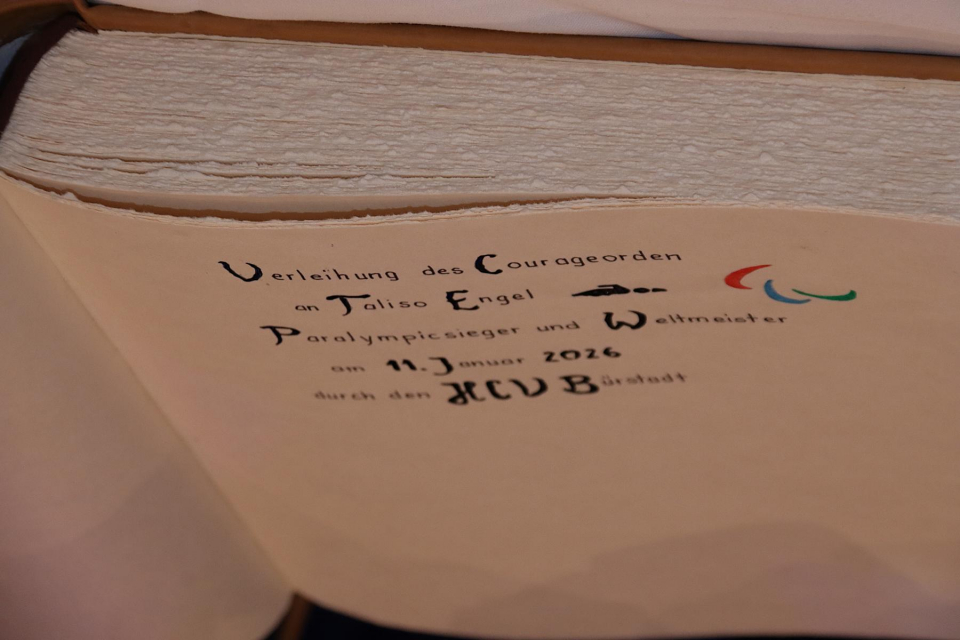 Verleihung des Courageorden
an Taliso Engel
Paralympicsieger und Weltmeister
am 11. Januar 2026
durch den HCV Bürstadt